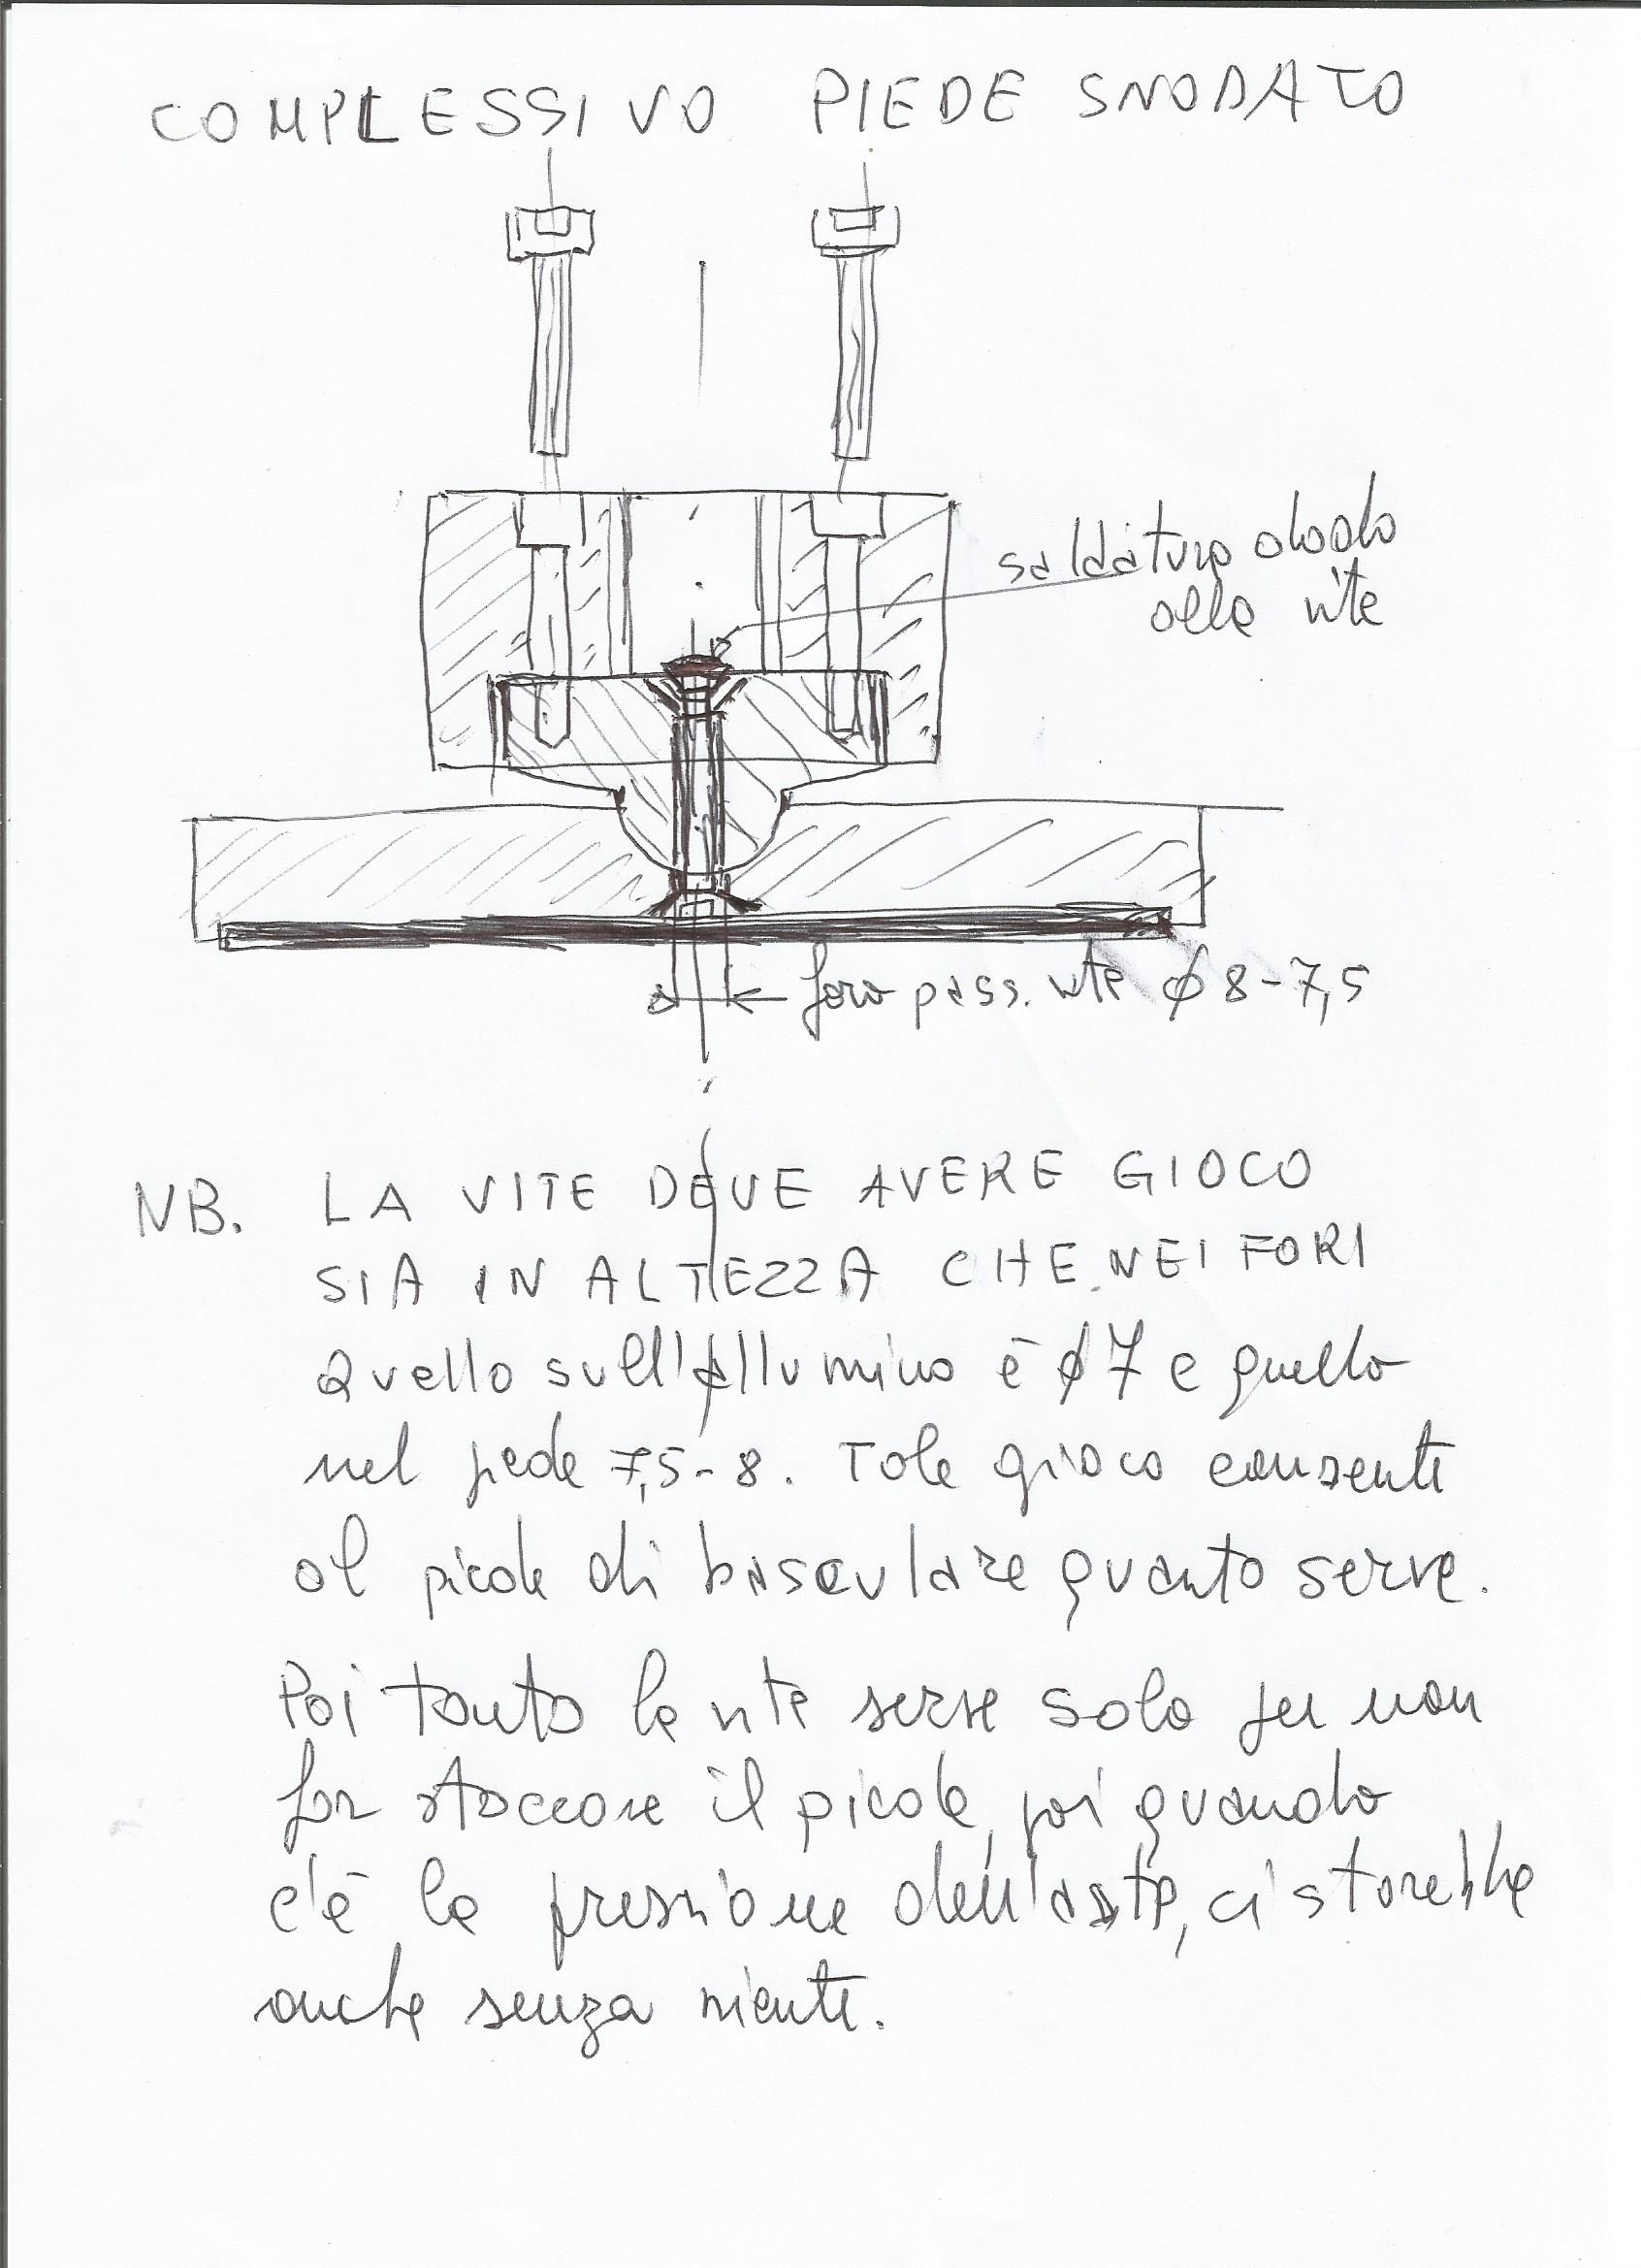 COMPLESSIVO PIEDE SNODATO
saldatura dado
alla vite
foro pass. vite ϕ 8-7,5
NB. LA VITE DEVE AVERE GIOCO
SIA IN ALTEZZA CHE NEI FORI
Quello sull'allumino è ϕ7 e quello
nel piede 7,5-8. Tale gioco consente
al piede di basculare quanto serve.
Poi tanto la vite serve solo per non
far staccare il piede, poi quando
c'è la pressione dell'asta, ci starebbe
anche senza niente.